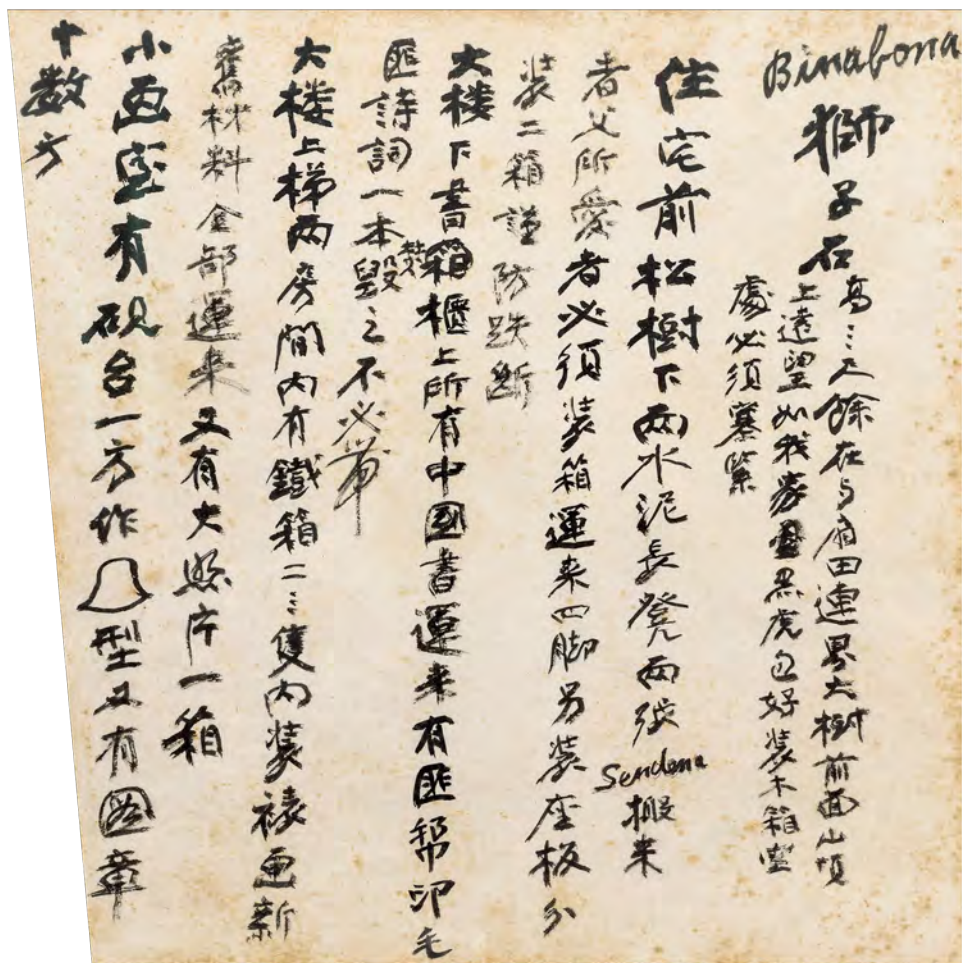 Binabona
獅子石 高三、三尺餘在与扇田連界大樹前面山頂
上遠望如我家黑虎包好裝木箱空
處必須塞緊
住宅前松樹下兩水泥長凳兩張 Sendena 搬来
者父所愛者必須装箱運来四脚另装座板分
装二箱謹防跌斷
大楼下書箱櫃上所有中國書運来有匪幫印毛
匪詩詞一本焚毀之不必帶
大楼上梯两房間内有鐵箱二三隻内装裱画新
舊材料全部運来又有大照片一箱
小画室有砚台一方作型又有图章
十数方